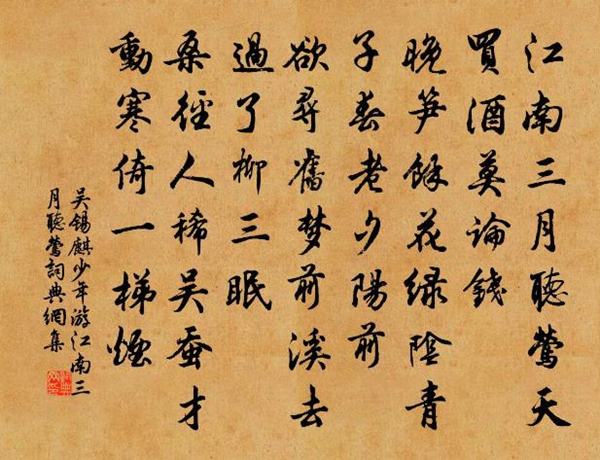 江南三月聽鶯天
買酒莫論錢
晚笋餘花绿陰青
子春老夕陽前
欲尋舊梦前溪去
過了柳三眠
桑徑人稀吴蚕才
動寒倚一梯煙
吴锡麒少年游江南三
月聽鶯詞典網集